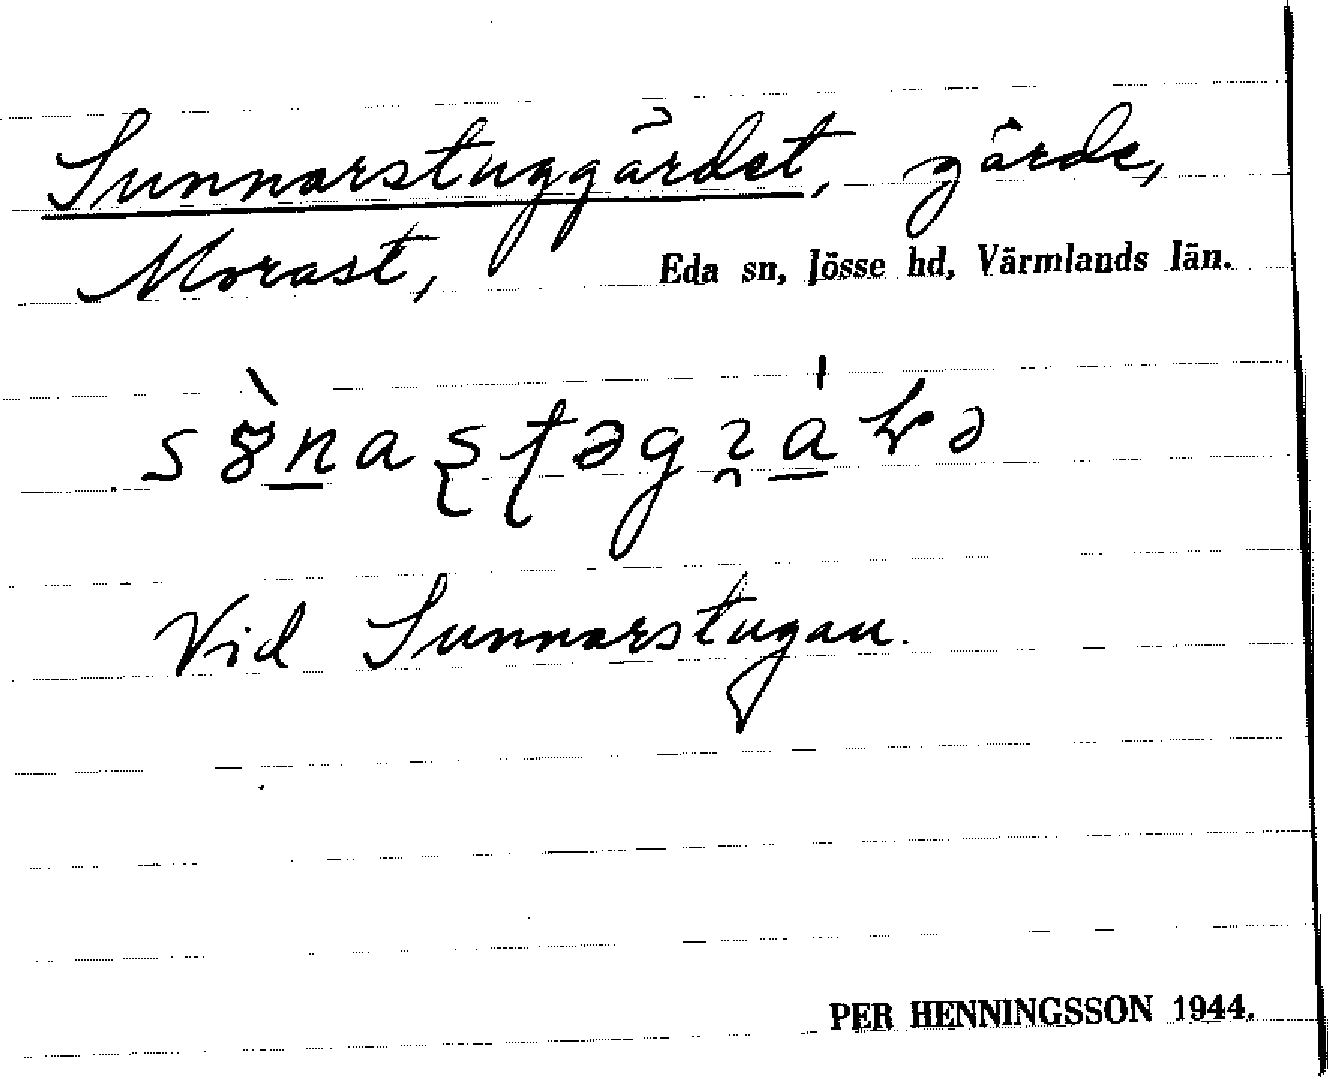 Sunnarstuggärdet, gärde,
Morast,
Eda sn, Jösse hd, Värmlands län.
Vid Sunnarstugan.
PER HENNINGSSON 1944.